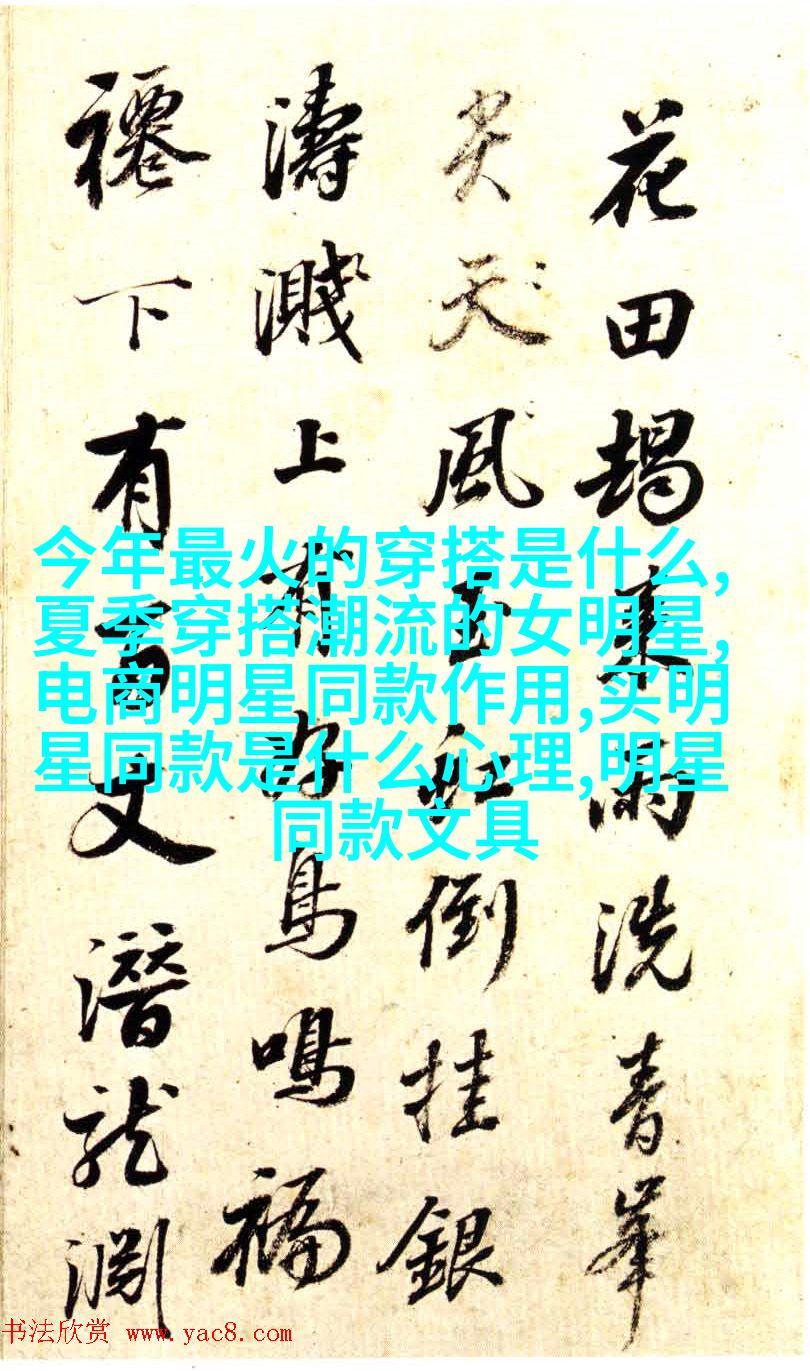 花田朅來雨洗青峯
尖天風玉虹倒挂銀
濤濺上有好鳥鳴福
下有百丈潛龍淵
今年最火的穿搭是什么,
夏季穿搭潮流的女明星,
电商明星同款作用,买明
星同款是什么心理,明星
同款文具
书法欣赏 www.yac8.com